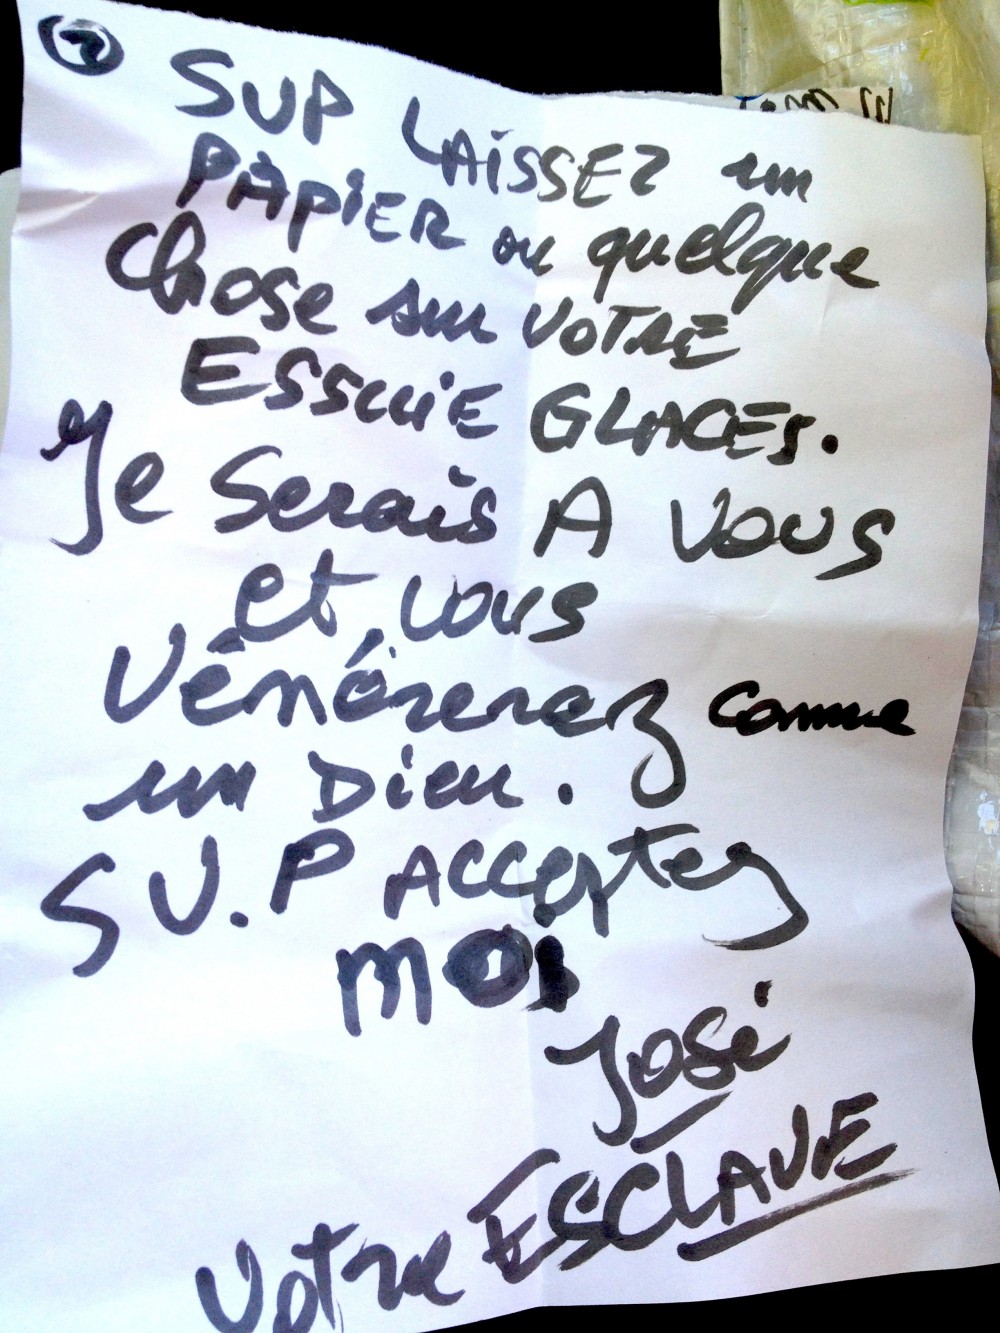 2
SUP LAISSEZ un
PAPIER ou quelque
chose sur VOTRE
ESSUIE GLACES.
Je Serais A VOUS
et vous
Vénérerez comme
un Dieu.
S V.P ACCeptez
MOi
José
Votre ESCLAVE